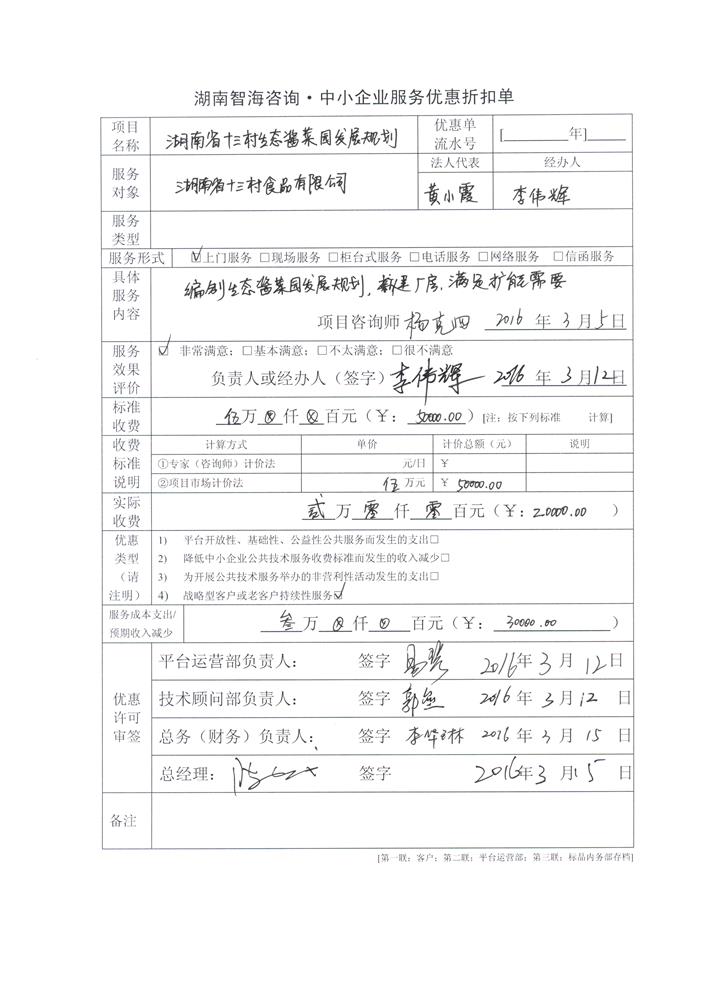 湖南智海咨询·中小企业服务优惠折扣单
项目名称 湖南省十三村生态酱菜园发展规划 优惠单流水号 [ 年]
服务对象 湖南省十三村食品有限公司 法人代表 经办人
黄小霞 李伟辉
服务类型
服务形式 ☑上门服务 □现场服务 □柜台式服务 □电话服务 □网络服务 □信函服务
具体服务内容 编制生态酱菜园发展规划,新建厂房,满足扩能需要
项目咨询师 杨克四 2016 年 3 月 5 日
服务效果评价 ☑ 非常满意;□基本满意;□不太满意;□很不满意
负责人或经办人(签字)李伟辉 2016 年 3 月 12 日
标准收费 伍万 ⊗ 仟 ⊗ 百元(¥: 50000.00)[注:按下列标准 计算]
收费标准说明 计算方式 单价 计价总额(元) 说明
①专家(咨询师)计价法 元/日 ¥
②项目市场计价法 伍 万元 ¥ 50000.00
实际收费 贰 万 零 仟 零 百元(¥:20000.00 )
优惠类型(请注明) 1) 平台开放性、基础性、公益性公共服务而发生的支出□
2) 降低中小企业公共技术服务收费标准而发生的收入减少□
3) 为开展公共技术服务举办的非营利性活动发生的支出□
4) 战略型客户或老客户持续性服务☑
服务成本支出/预期收入减少 叁 万 ⊗ 仟 ⊗ 百元(¥: 30000.00 )
优惠许可审签 平台运营部负责人: 签字 2016年 3 月 12 日
技术顾问部负责人: 签字 2016 年 3 月 12 日
总务(财务)负责人: 签字 李华林 2016 年 3 月 15 日
总经理: 签字 2016年 3 月 15 日
备注
[第一联:客户;第二联:平台运营部;第三联:标品内务部存档]